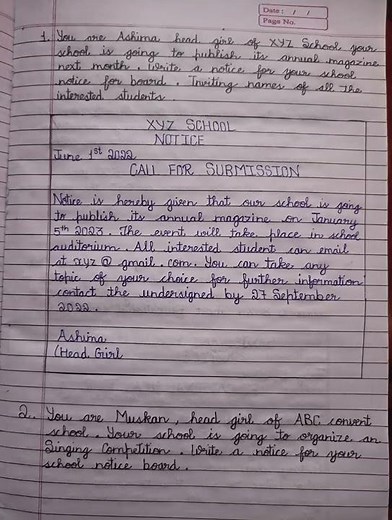 Date: / /
Page No.
1. You are Ashima head girl of XYZ School your
school is going to publish its annual magazine
next month. Write a notice for your school
notice for board. Inviting names of all the
interested students.
XYZ SCHOOL
NOTICE
June 1st 2022
CALL FOR SUBMISSION
Notice is hereby given that our school is going
to publish its annual magazine on January
5th 2023. The event will take place in school
auditorium. All interested student can email
at xyz@gmail.com. You can take any
topic of your choice for further information
contact the undersigned by 27 September
2022.
Ashima
(Head Girl
2. You are Muskan, head girl of ABC convent
school. Your school is going to organize an
Singing Competition. Write a notice for your
school notice board.